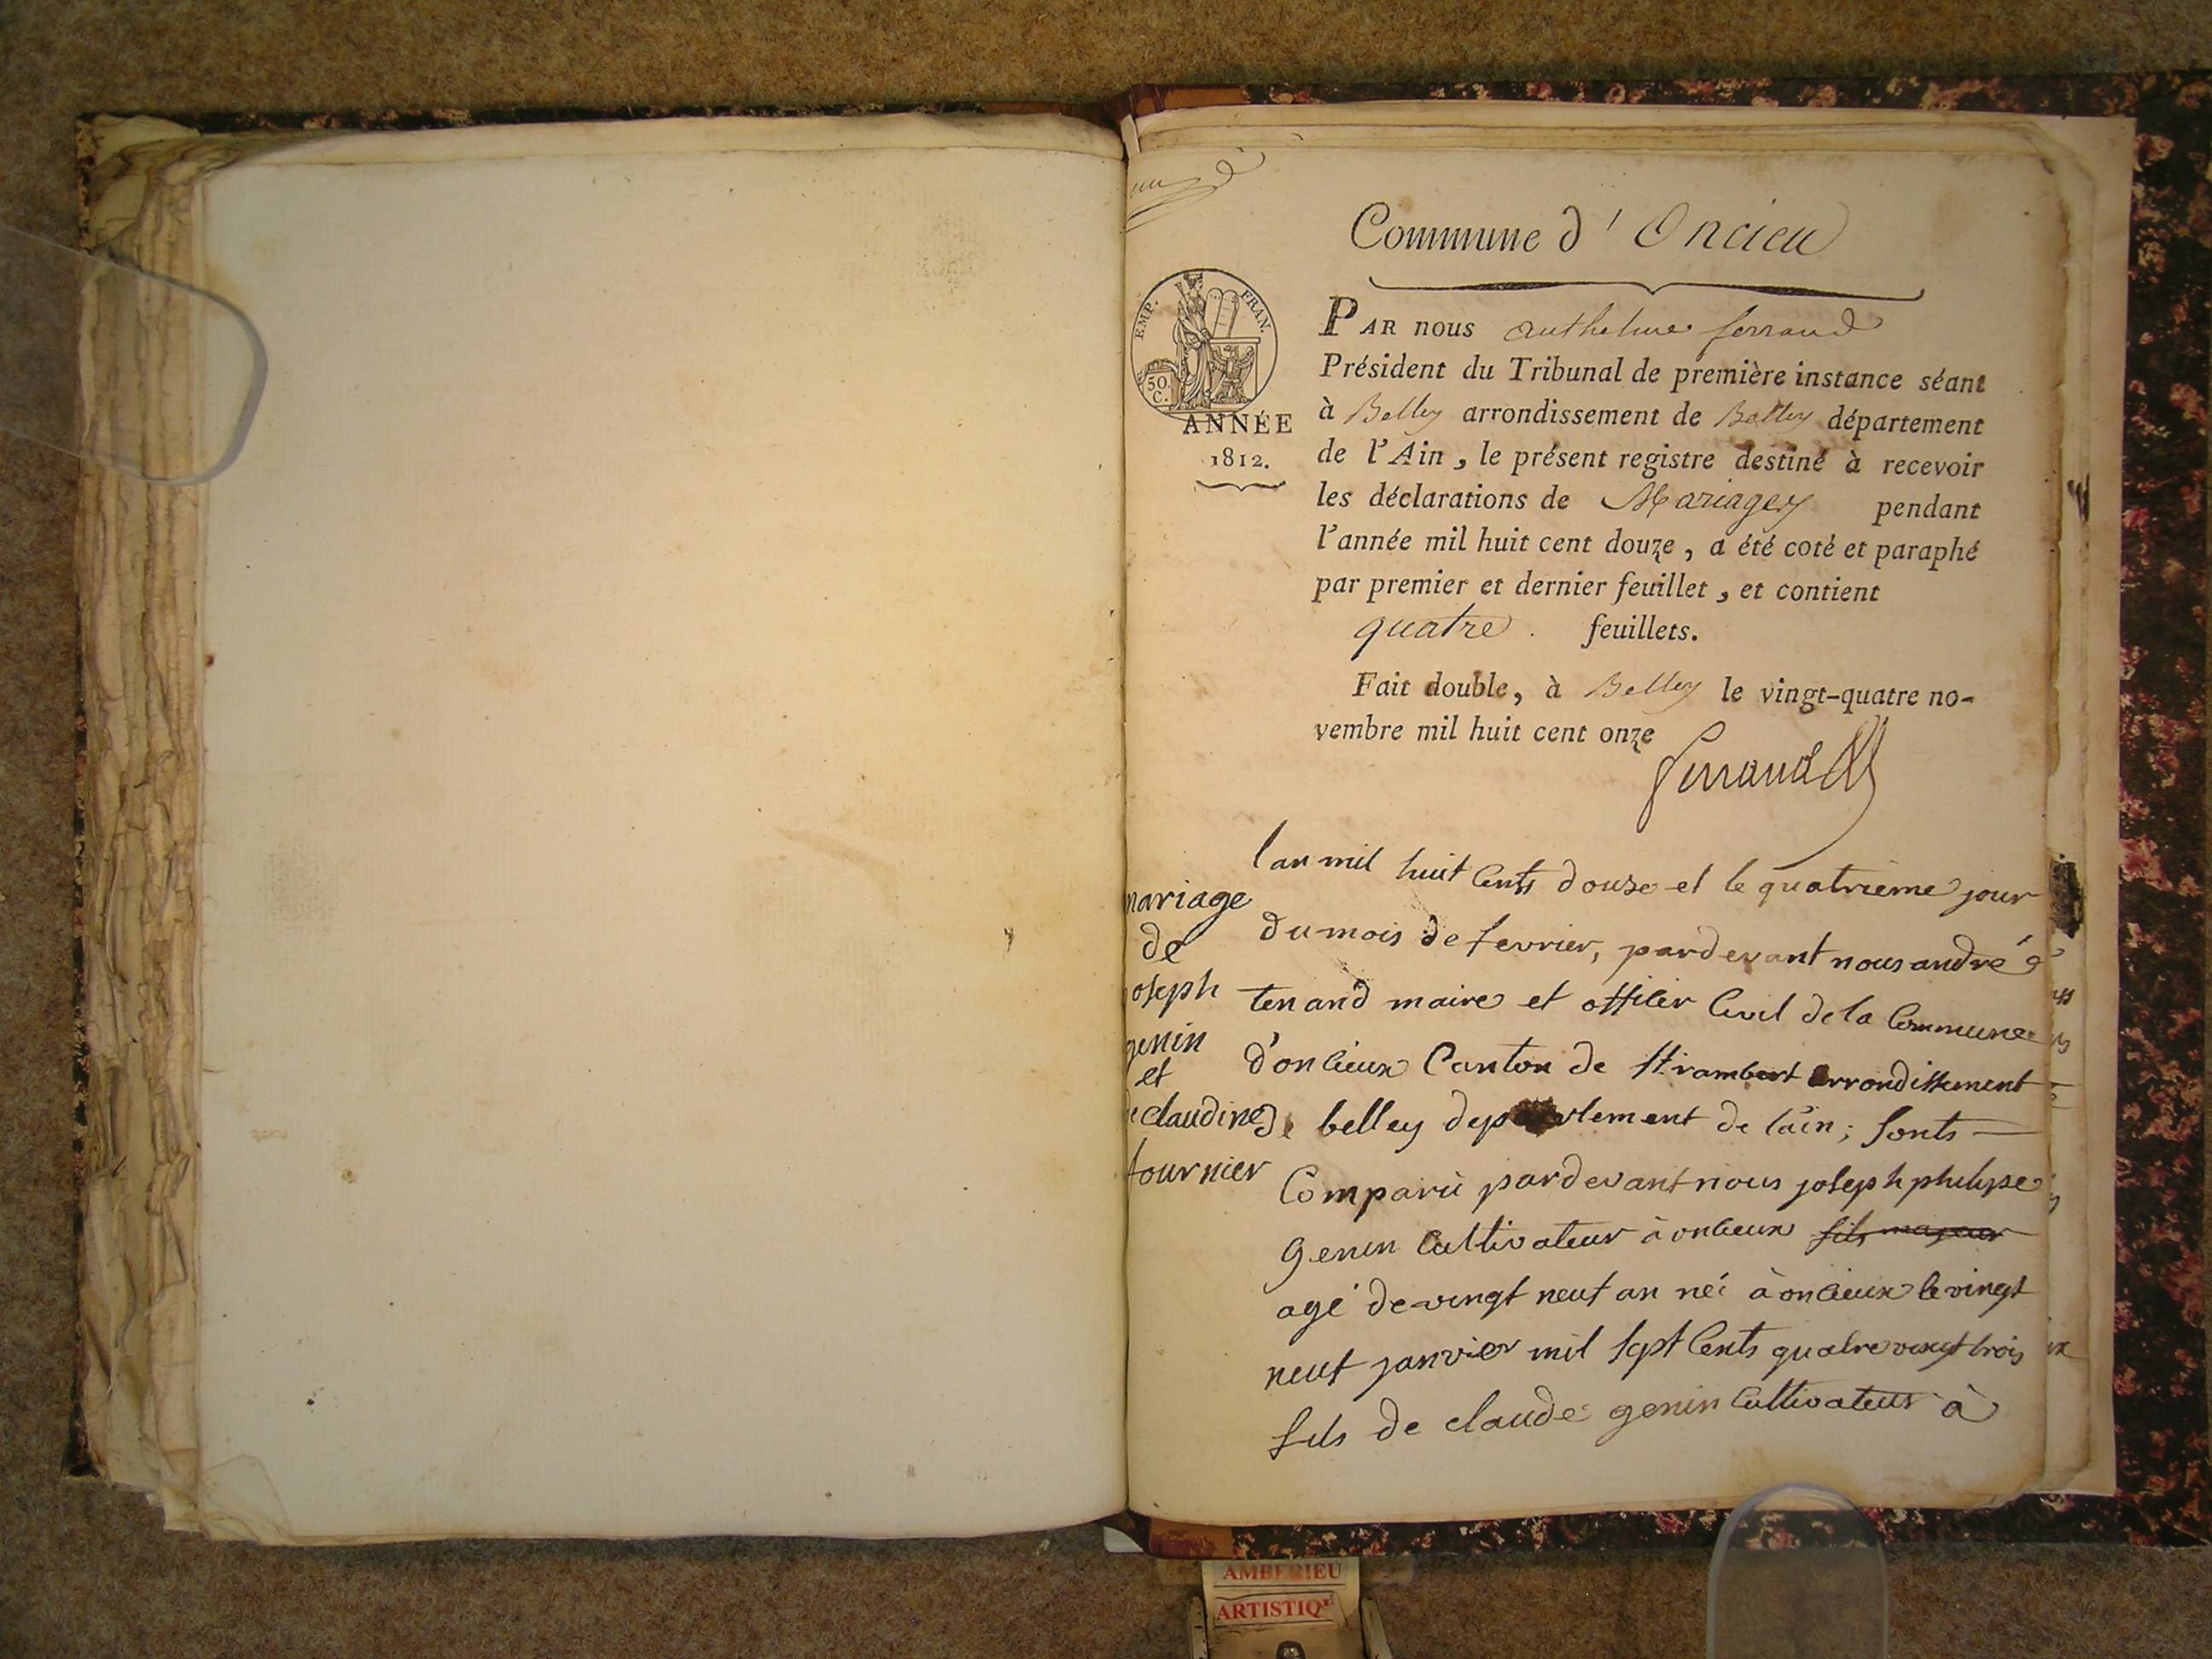 Commune d'Oncieu
EMP. FRAN.
50 C.
ANNÉE
1812.
PAR nous anthelme ferrand
Président du Tribunal de première instance séant
à Belley arrondissement de Belley département
de l'Ain, le présent registre destiné à recevoir
les déclarations de Mariages pendant
l'année mil huit cent douze, a été coté et paraphé
par premier et dernier feuillet, et contient
quatre. feuillets.
Fait double, à Belley le vingt-quatre no-
vembre mil huit cent onze
ferrand
mariage
de
joseph
genin
et
de claudine
fournier
lan mil huit cents douze et le quatrieme jour
du mois de fevrier, pardevant nous andré
tenand maire et officier civil de la commune
d'oncieux canton de St rambert arrondissement
de belley departement de l'ain; sonts
comparù pardevant nous joseph philipe
genin cultivateur à oncieux fils majeur
agé de vingt neuf an né à oncieux le vingt
neuf janvier mil sept cents quatre vingt trois
fils de claude genin cultivateur à
AMBERIEU
ARTISTIQ